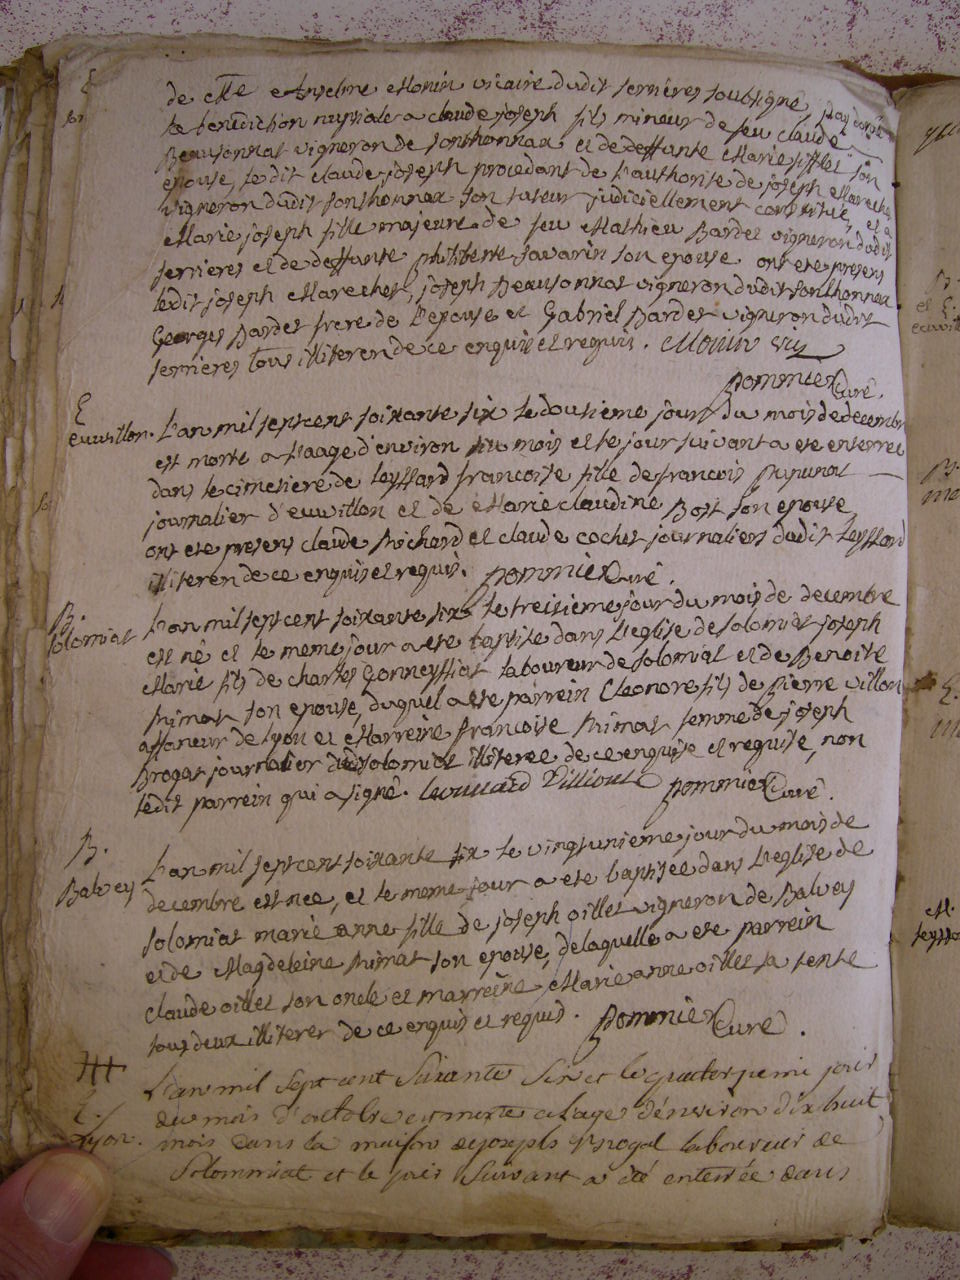 de Mre Anselme Monin vicaire dudit serrieres soubsigné
la benediction nuptiale a claude joseph fils mineur de feu claude
Beausonnat vigneron de sonthonnax et de deffunte Marie son
epouse, ledit claude joseph procedant de l'authorité de joseph Marechet
vigneron dudit sonthonnax son tuteur judiciellement constitué, et a
Marie joseph fille majeure de feu Mathieu Bardet vigneron dudit
serrieres et de deffunte philiberte savarin son epouse ont ete presens
ledit joseph Marechet, joseph Beausonnat vigneron dudit sonthonnax
Georges Bardet frere de l'epouse et Gabriel Bardet vigneron dudit
serrieres tous illiteren de ce enquis et requis. Monin vic
pommier Curé.
E
euvillon.
L'an mil sept cent soixante six le dousieme jour du mois de decembre
est morte a l'aage d'environ mois et le jour suivant a ete enterree
dans le cimetiere de leyssard francoise fille de francois pupunat
journalier d'euvillon et de Marie claudine Bost son epouse
ont ete presens claude Richard et claude cochet journaliers dudit leyssard
illiteren de ce enquis et requis. pommier Curé.
B.
solomiat
L'an mil sept cent soixante six le treisieme jour du mois de decembre
est né et le meme jour a ete baptise dans l'eglise de solomiat joseph
Marie fils de charles Gonneyssiat laboureur de solomiat et de Benoite
primat son epouse, duquel a ete parrein Cleonore fils de pierre villon
affaneur de lyon et Marreine francoise primat femme de joseph
Brogat journalier de solomiat illiteree de ce enquise et requise, non
ledit parrein qui a signé. pommier Curé.
B.
Balvey
L'an mil sept cent soixante six le vingtunieme jour du mois de
decembre est nee, et le meme jour a ete baptisee dans l'eglise de
solomiat marie anne fille de joseph oillet vigneron de Balvey
et de Magdeleine primat son epouse, de laquelle a ete parrein
claude oillet son oncle et marreine Marie anne oillet sa tente
tous deux illiterer de ce enquis et requis. pommier Curé.
E.
Lyon.
L'an mil sept cent soixante six et le quatorzieme jour
du mois d'octobre est morte a l'age d'environ dix huit
mois dans la maison de joseph Brogat laboureur de
Solommiat et le jour suivant a été enterrée dans